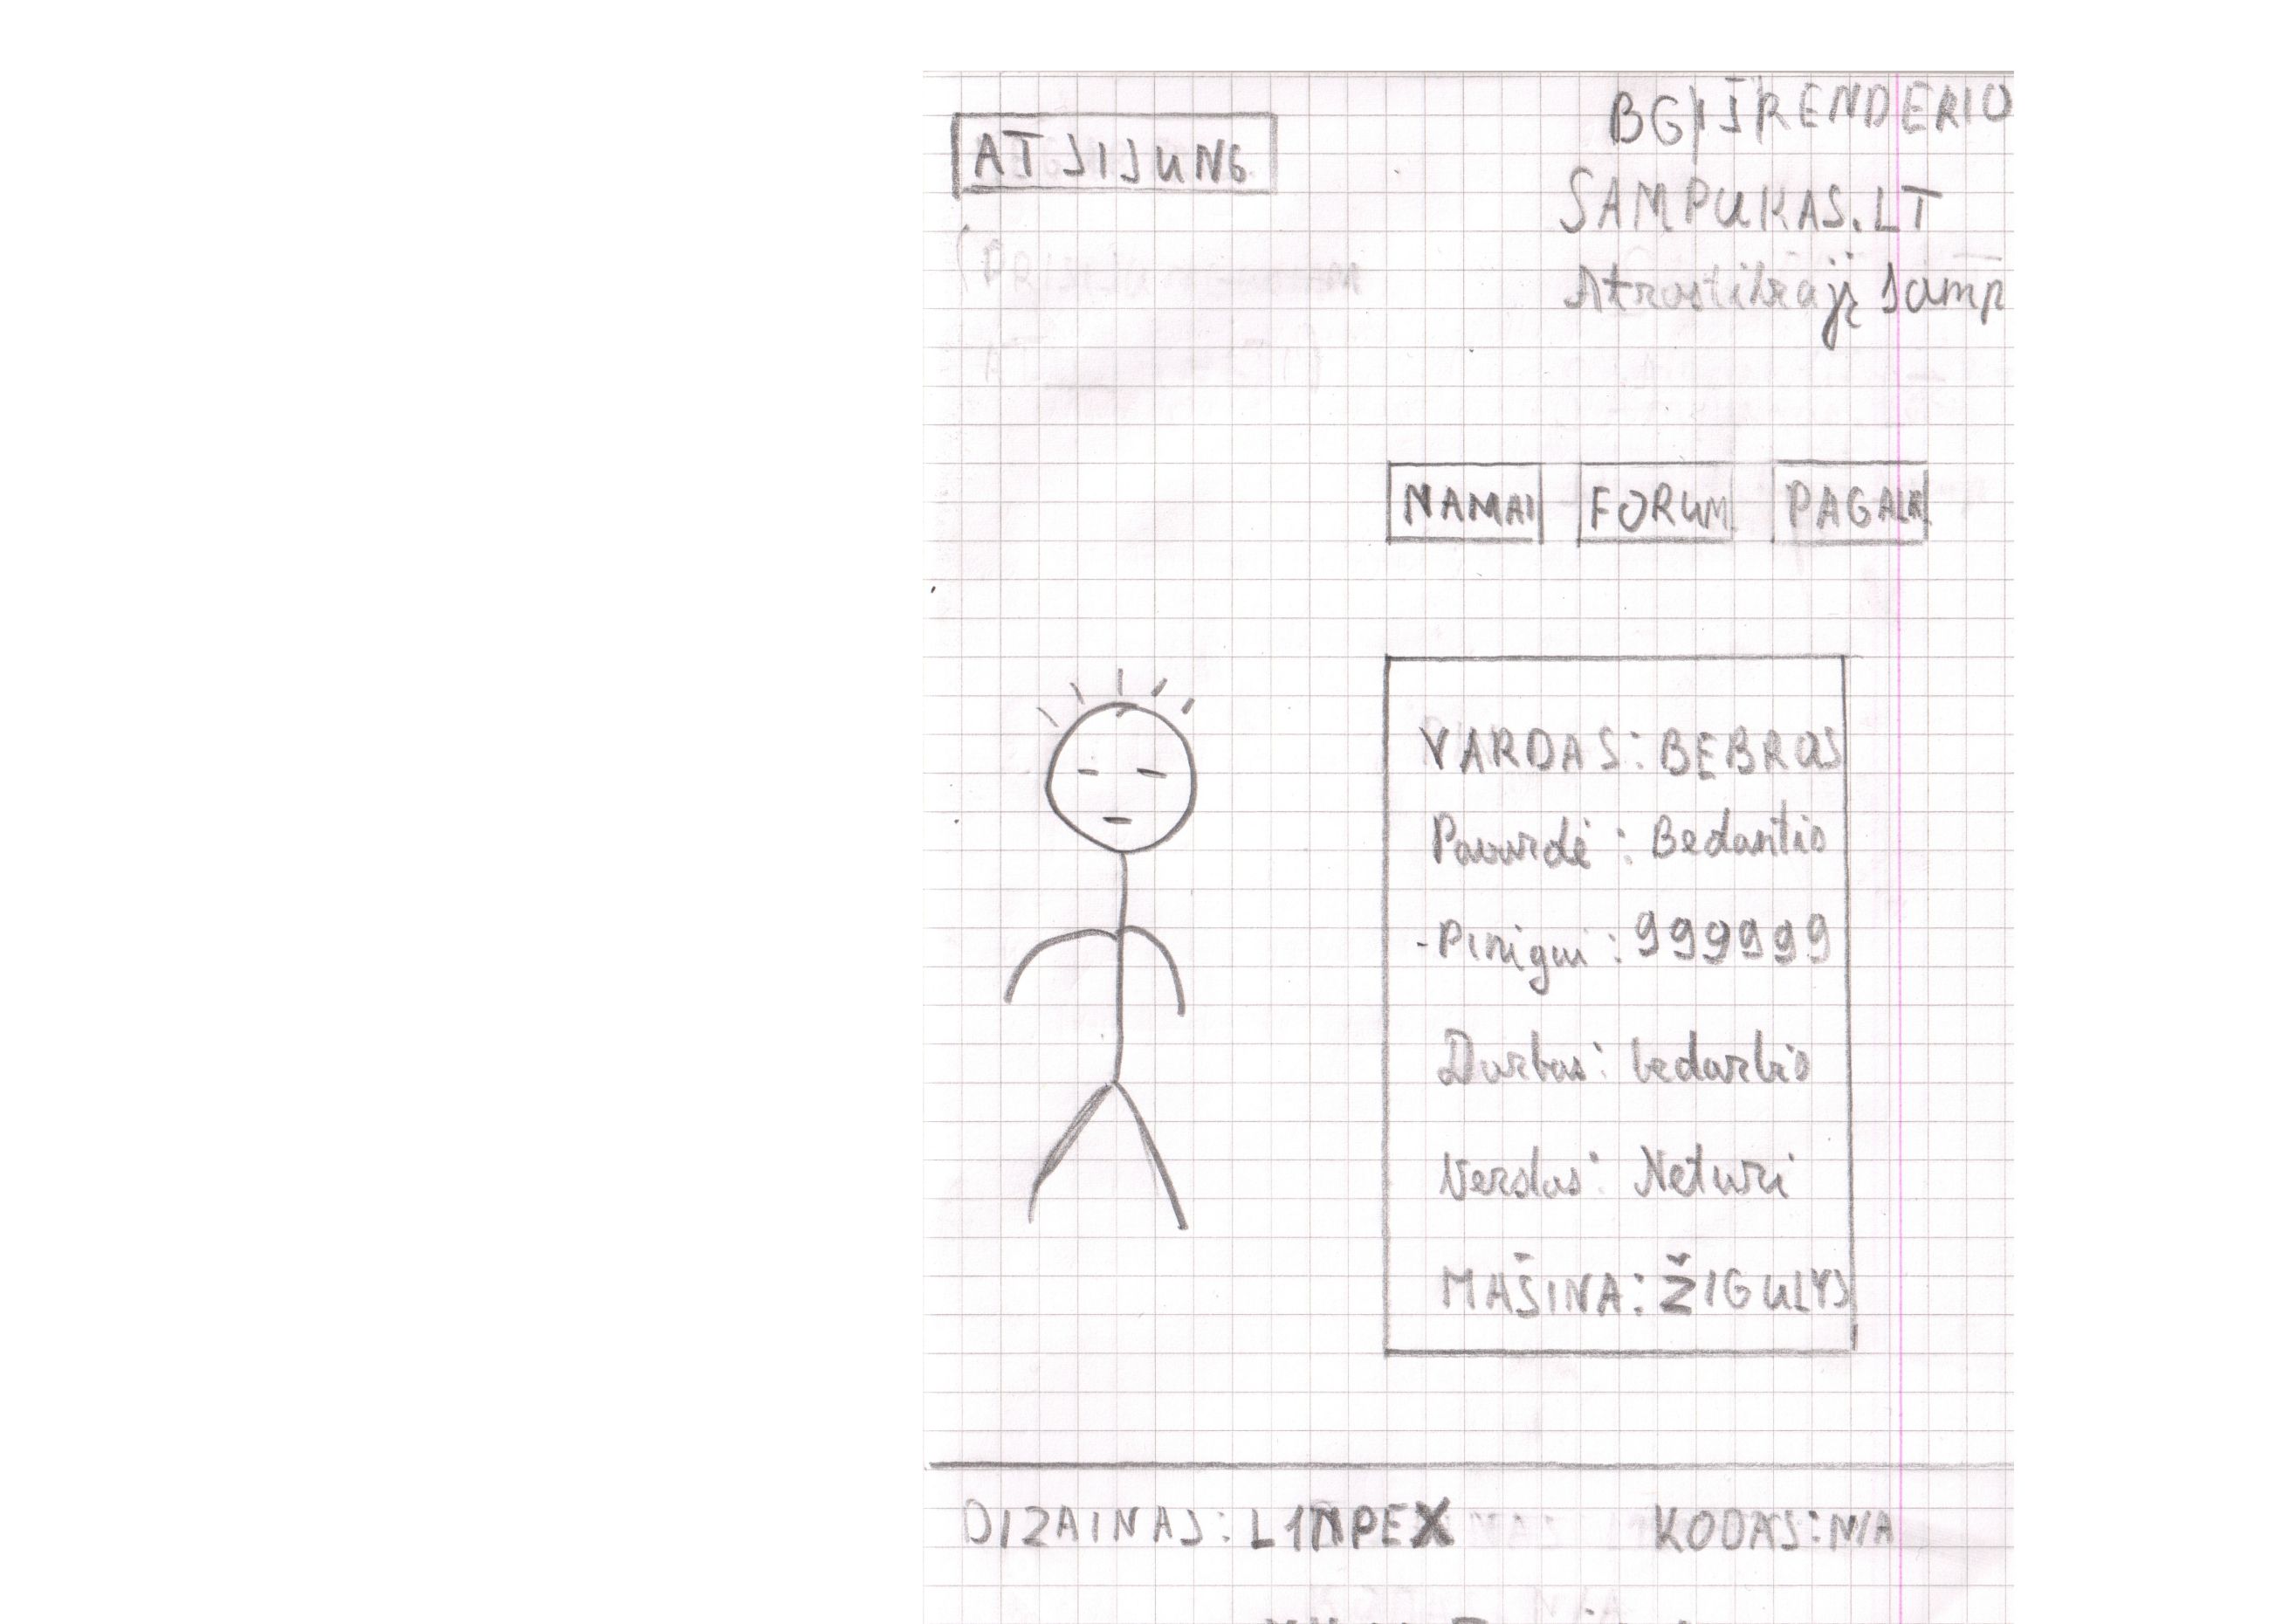 ATSIJUNG
BG IŠ RENDERIO
SAMPUKAS.LT
samp
NAMAI FORUM PAGALB
VARDAS: BEBRAS
Pavardė: Bedantis
Pinigai: 999999
Darbas: bedarbis
Verslas: Neturi
MAŠINA: ŽIGULYS
DIZAINAS: L1MPEX KODAS: N/A